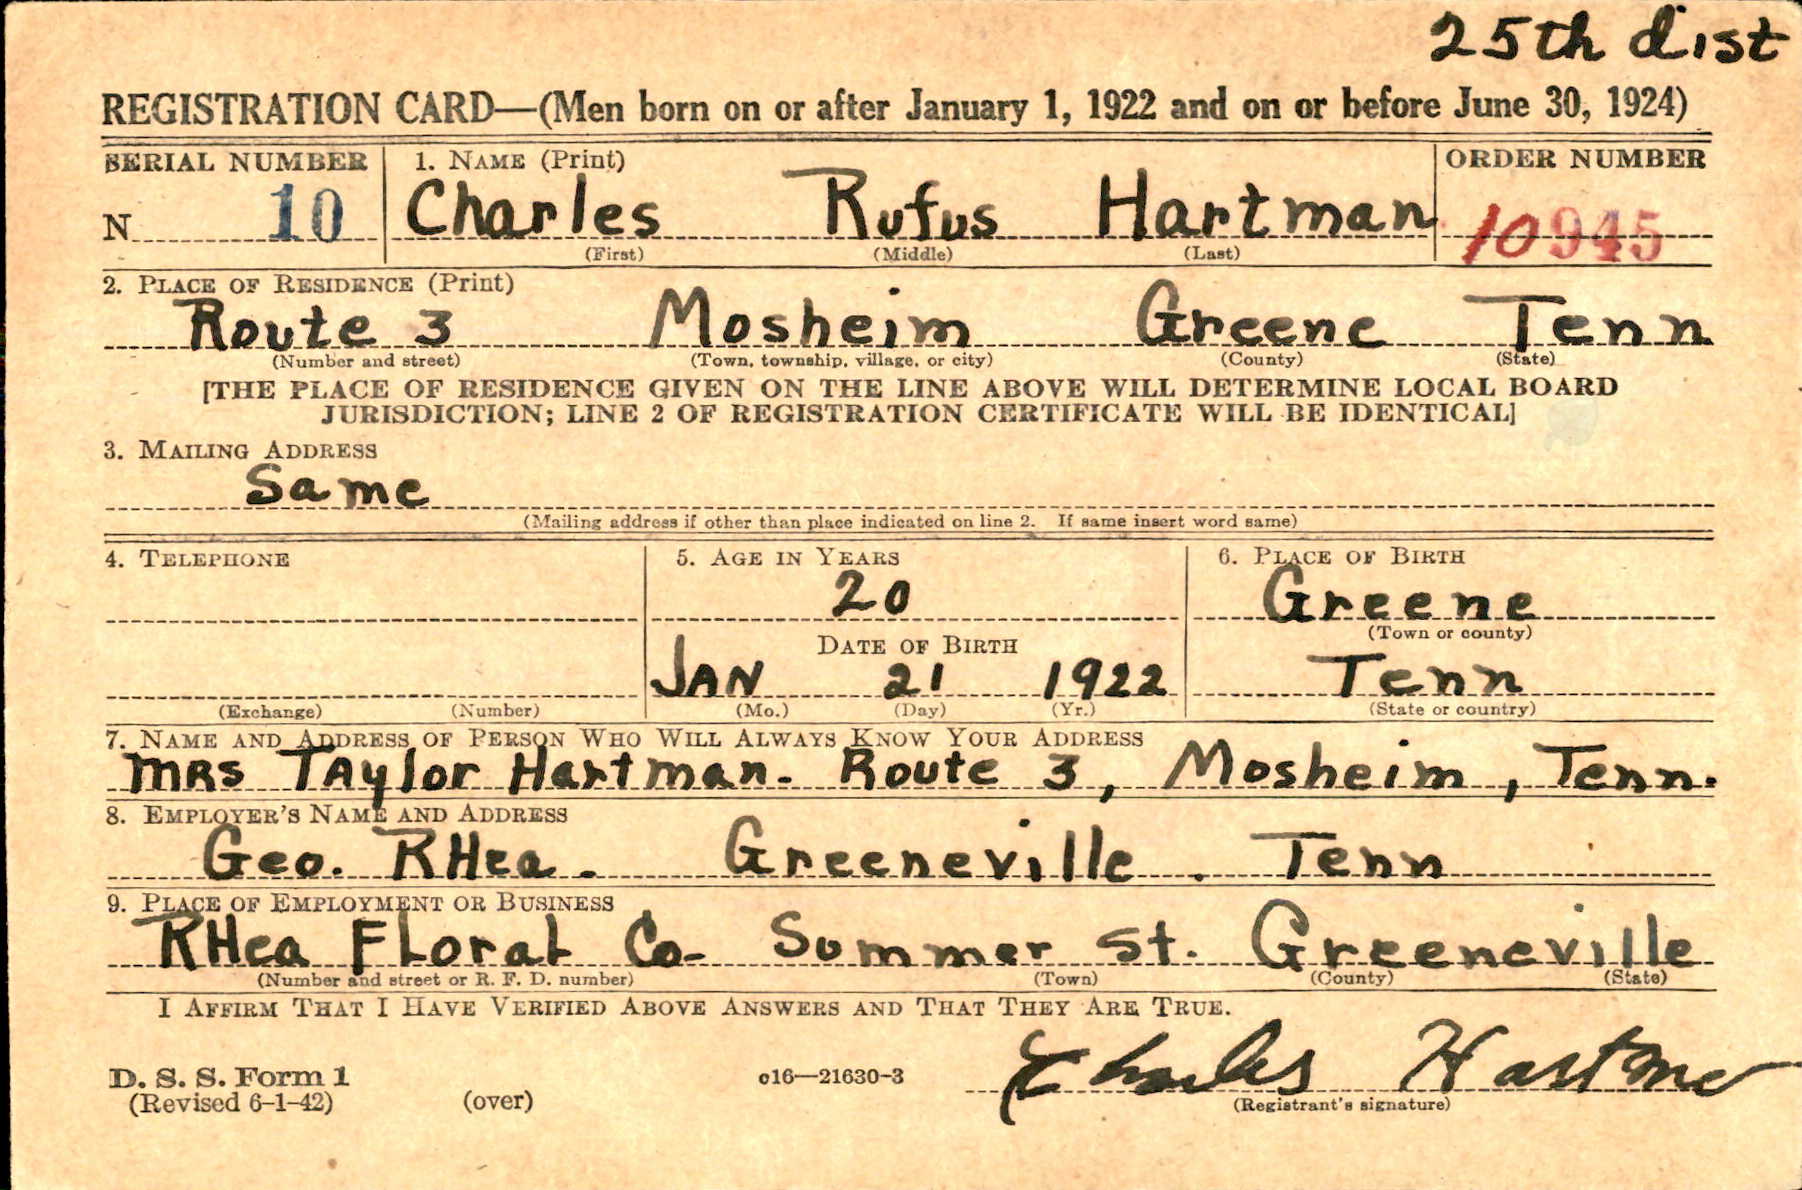 25th dist
REGISTRATION CARD—(Men born on or after January 1, 1922 and on or before June 30, 1924)
SERIAL NUMBER 1. NAME (Print) ORDER NUMBER
N 10 Charles Rufus Hartman 10945
(First) (Middle) (Last)
2. PLACE OF RESIDENCE (Print)
Route 3 Mosheim Greene Tenn
(Number and street) (Town, township, village, or city) (County) (State)
[THE PLACE OF RESIDENCE GIVEN ON THE LINE ABOVE WILL DETERMINE LOCAL BOARD
JURISDICTION; LINE 2 OF REGISTRATION CERTIFICATE WILL BE IDENTICAL]
3. MAILING ADDRESS
Same
(Mailing address if other than place indicated on line 2. If same insert word same)
4. TELEPHONE 5. AGE IN YEARS 6. PLACE OF BIRTH
20 Greene
(Town or county)
DATE OF BIRTH
JAN 21 1922 Tenn
(Exchange) (Number) (Mo.) (Day) (Yr.) (State or country)
7. NAME AND ADDRESS OF PERSON WHO WILL ALWAYS KNOW YOUR ADDRESS
MRS TAylor Hartman. Route 3, Mosheim, Tenn.
8. EMPLOYER'S NAME AND ADDRESS
Geo. RHea. Greeneville. Tenn
9. PLACE OF EMPLOYMENT OR BUSINESS
RHea Floral Co- Summer St. Greeneville
(Number and street or R. F. D. number) (Town) (County) (State)
I AFFIRM THAT I HAVE VERIFIED ABOVE ANSWERS AND THAT THEY ARE TRUE.
D. S. S. Form 1
(Revised 6-1-42) (over) c16—21630-3 Charles Hartman
(Registrant's signature)